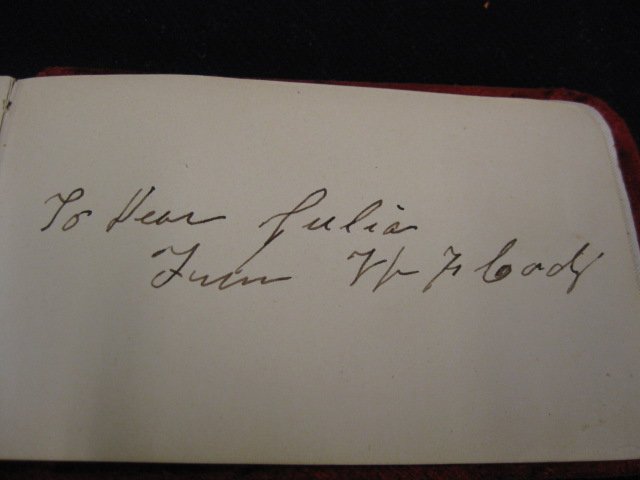 To Dear Julia
From W F Cody